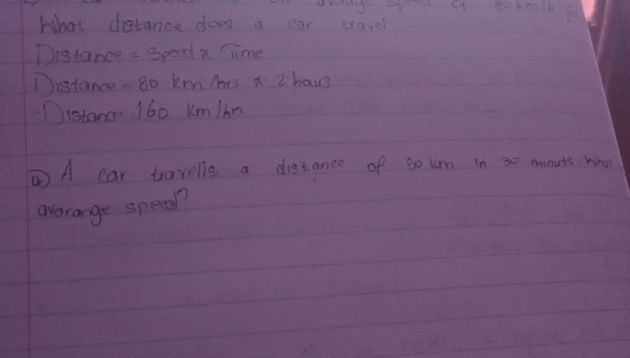 average speed of 80 km/h for
What distance does a car travel
Distance = Speed x Time
Distance = 80 km/hrs x 2 hours
Distance 160 km/hrs
4) A car travells a distance of 50 km in 30 minuts. What
avarange speed?